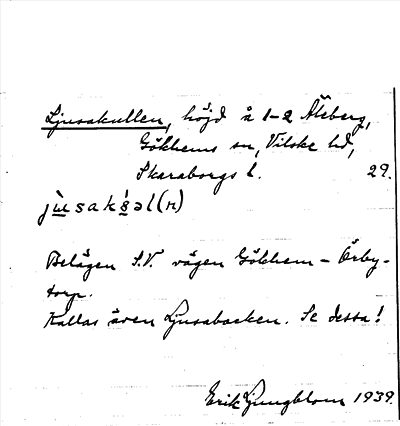 Ljusakullen, höjd å 1-2 Åleberg,
Gökhems sn, Vilske hd,
Skaraborgs l. 29.
Belägen S.V. vägen Gökhem - Örby-
torp.
Kallas även Ljusabacken. Se dessa!
Erik Ljungblom 1939